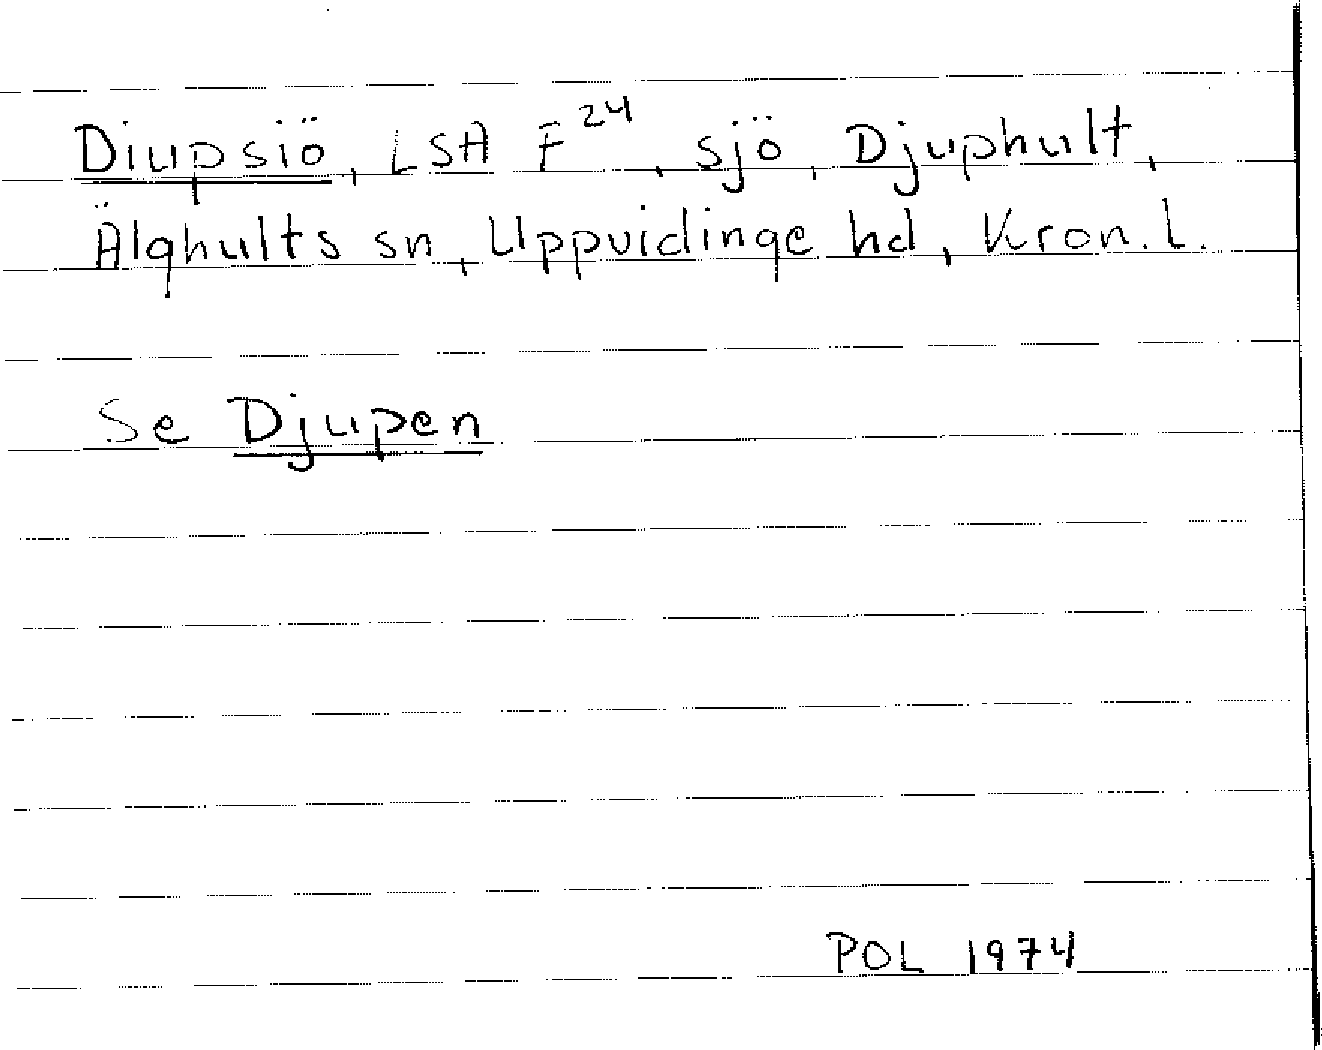 Diupsiö, LSA F²⁴, sjö, Djuphult,
Älghults sn, Uppvidinge hd, Kron. l.
Se Djupen
POL 1974